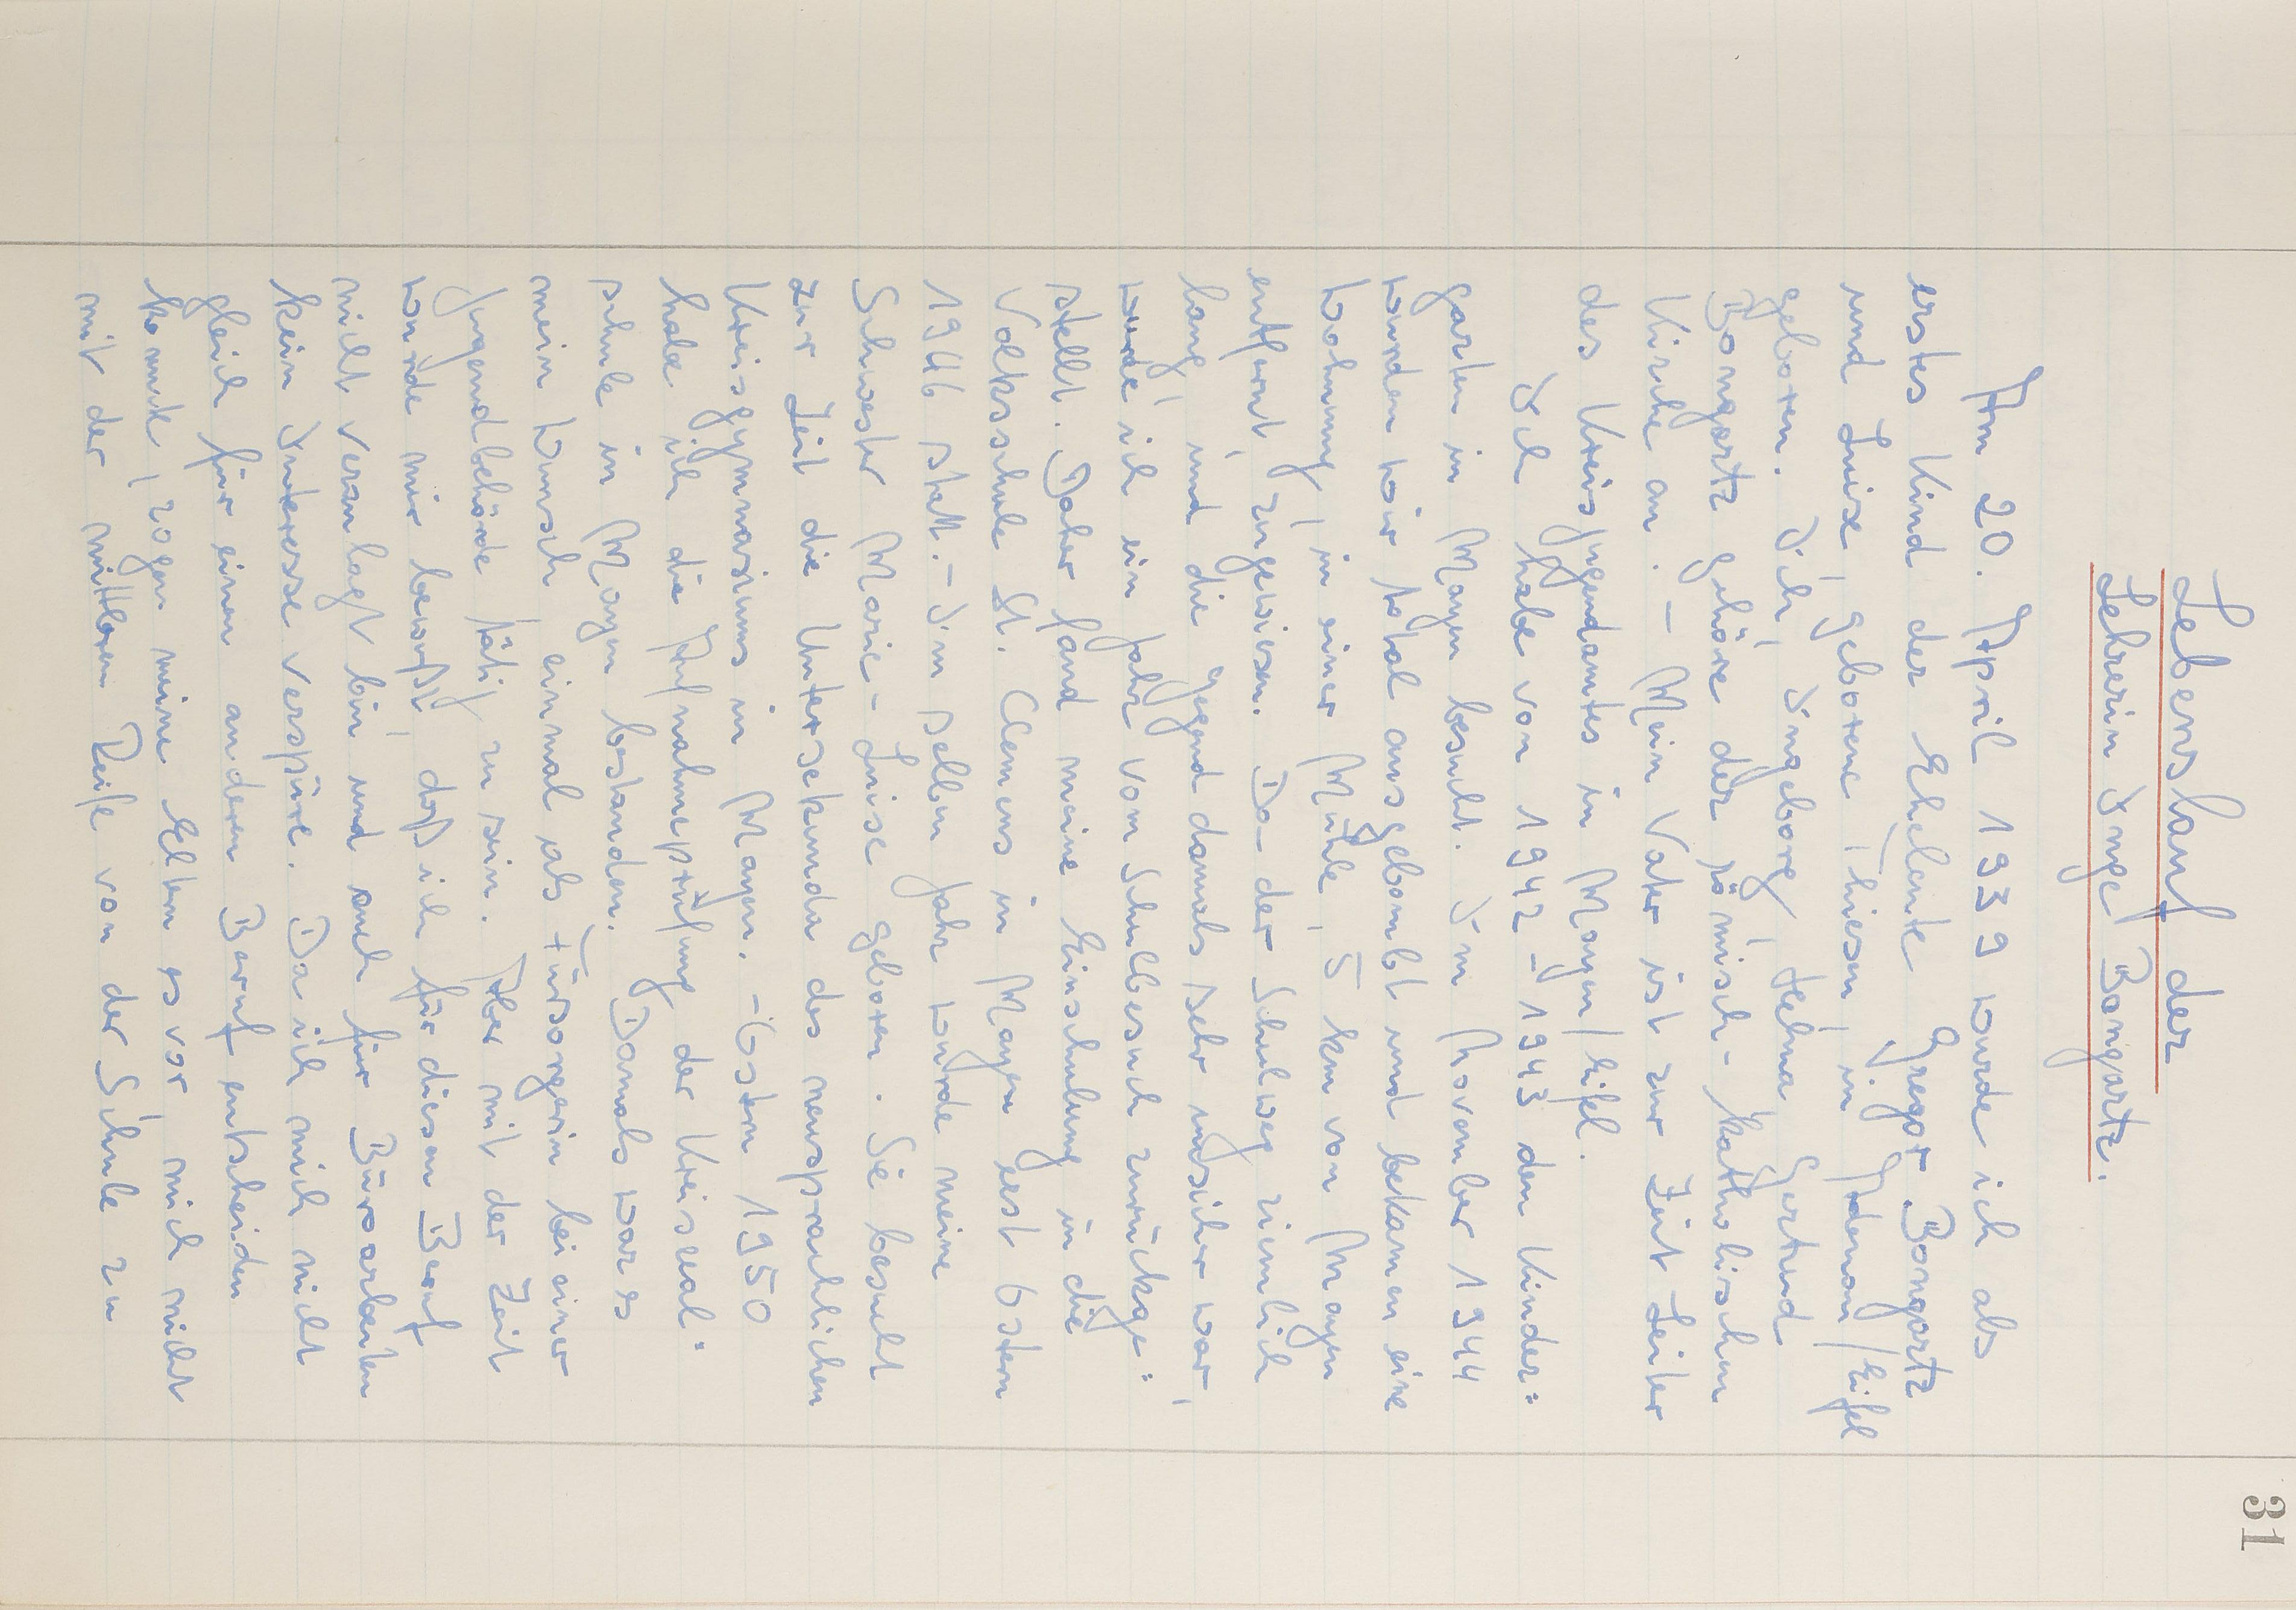 31
Lebenslauf der
Lehrerin Inge Bongartz.
Am 20. April 1939 wurde ich als
erstes Kind der Eheleute Gregor Bongartz
und Luise, geborene Thiesen in Adenau/Eifel
geboren. Ich, Ingeborg, Helma Gertrud
Bongartz gehöre der römisch-katholischen
Kirche an. - Mein Vater ist zur Zeit Leiter
des Kreisjugendamtes in Mayen/Eifel.
Ich habe von 1942-1943 den Kinder=
garten in Mayen besucht. Im November 1944
wurden wir total ausgebombt und bekamen eine
Wohnung, in einer Mühle, 5 km von Mayen
entfernt, zugewiesen. Da der Schulweg ziemlich
lang, und die Gegend damals sehr unsicher war,
wurde ich ein Jahr vom Schulbesuch zurückge=
stellt. Daher fand meine Einschulung in die
Volksschule St. Clemens in Mayen erst Ostern
1946 statt. - Im selben Jahr wurde meine
Schwester Marie-Luise geboren. Sie besucht
zur Zeit die Untersekunda des neusprachlichen
Kreisgymnasiums in Mayen. - Ostern 1950
habe ich die Aufnahmeprüfung der Kreisreal=
schule in Mayen bestanden. Damals war es
mein Wunsch einmal als Fürsorgerin bei einer
Jugendbehörde tätig zu sein. Aber mit der Zeit
wurde mir bewußt, daß ich für diesen Beruf
nicht veranlagt bin und auch für Büroarbeiten
kein Interesse verspüre. Da ich mich nicht
gleich für einen anderen Beruf entscheiden
konnte, zogen meine Eltern es vor mich nicht
mit der mittleren Reife von der Schule zu